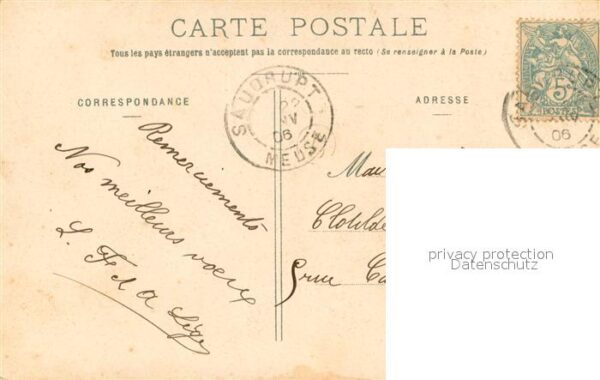 CARTE POSTALE
Tous les pays étrangers n'acceptent pas la correspondance au recto (Se renseigner à la Poste)
CORRESPONDANCE
ADRESSE
SAUDRUPT
06
MEUSE
5
06
Remerciements
Nos meilleurs vœux
L. F et A
Clotilde
rue
privacy protection
Datenschutz